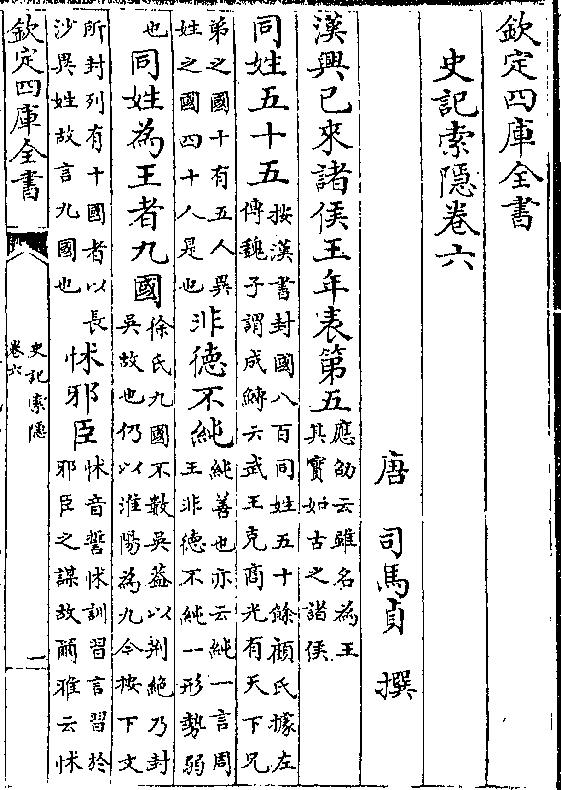 欽定四庫全書
史記索隱卷六
唐 司馬貞 撰
漢興已來諸侯王年表第五應劭云雖名為王
其實如古之諸侯
同姓五十五按漢書封國八百同姓五十餘顧氏據左
傳魏子謂成鱄云武王克商光有天下兄
弟之國十有五人異
姓之國四十人是也
非德不純純善也亦云純一言周
王非德不純一形勢弱
也
同姓為王者九國徐氏九國不數吳蓋以荆絶乃封
吳故也仍以淮陽為九今按下文
所封列有十國者以長
沙異姓故言九國也
怵邪臣怵音誓怵訓習言習於
邪臣之謀故爾雅云怵
欽定四庫全書
史記索隱
卷六
一